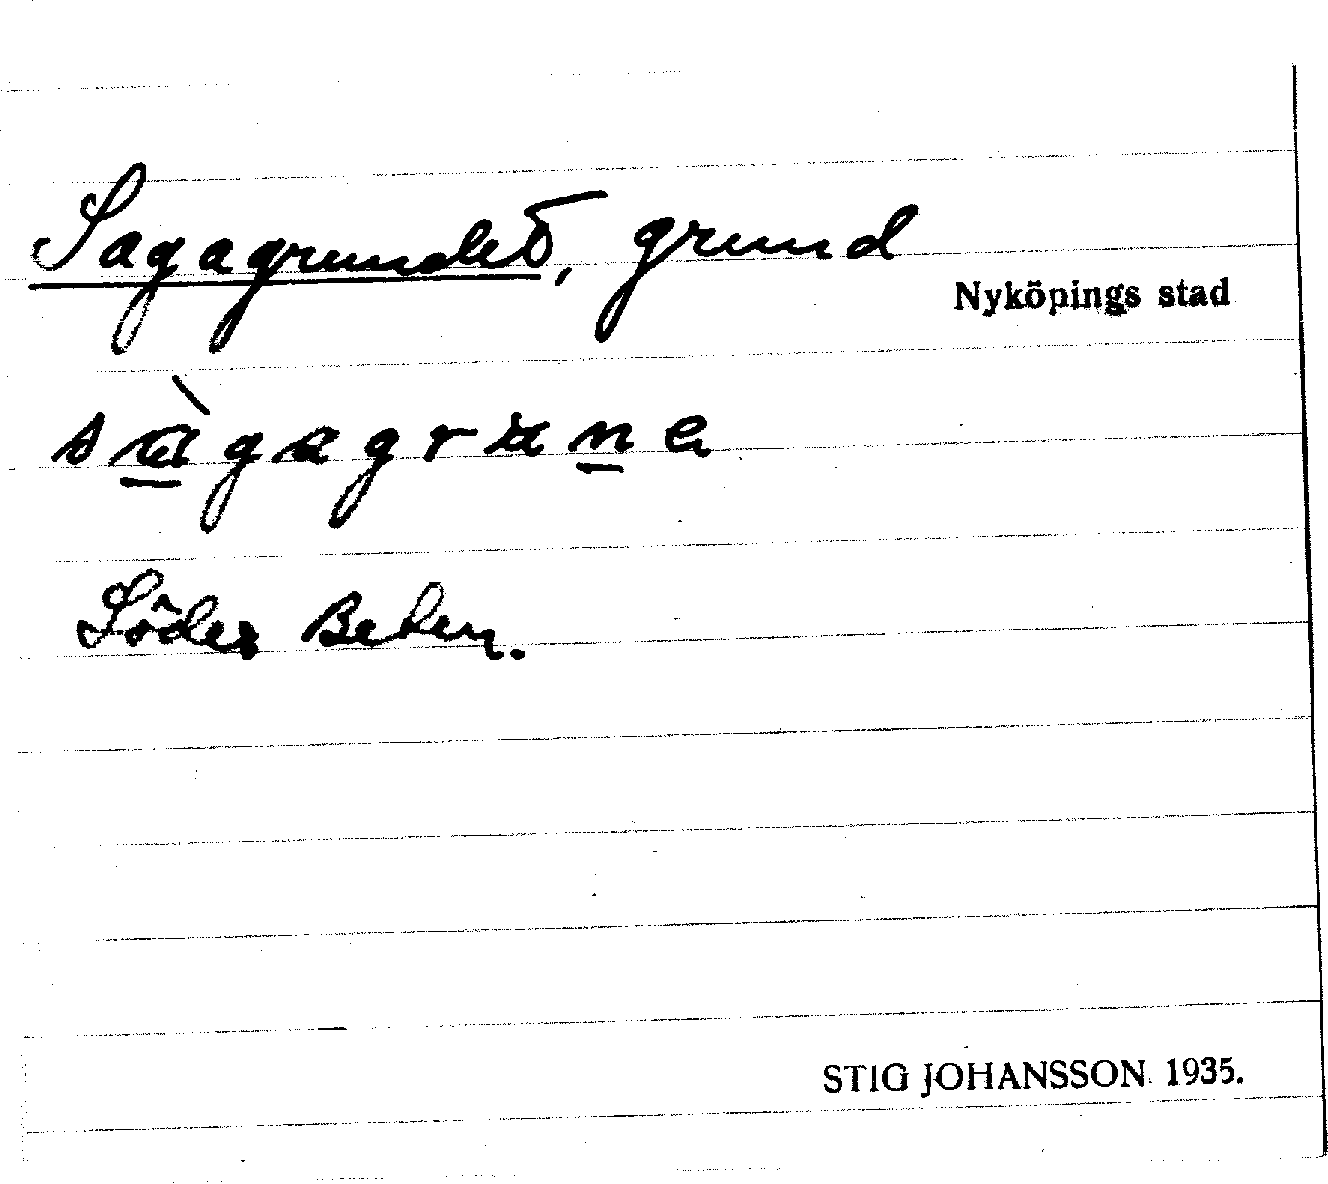 Sagagrundet, grund
Nyköpings stad
sàgagruna
Söder
STIG JOHANSSON 1935.